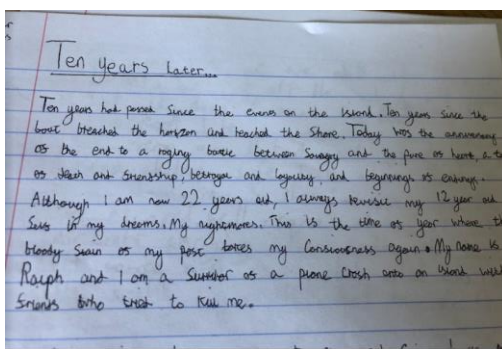 Ten years Later...
Ten years had passed since the events on the island. Ten years since the
boat breached the horizon and reached the shore. Today was the anniversary
of the end to a raging battle between savagery and the pure of heart, a
of death and friendship, betrayal and loyalty, and beginnings of endings.
Although I am now 22 years old, I always revisit my 12 year old
self in my dreams. My nightmares. This is the time of year where
bloody stain of my past takes my consciousness again. My name is
Ralph and I am a survivor of a plane crash onto an island
friends who tried to kill me.